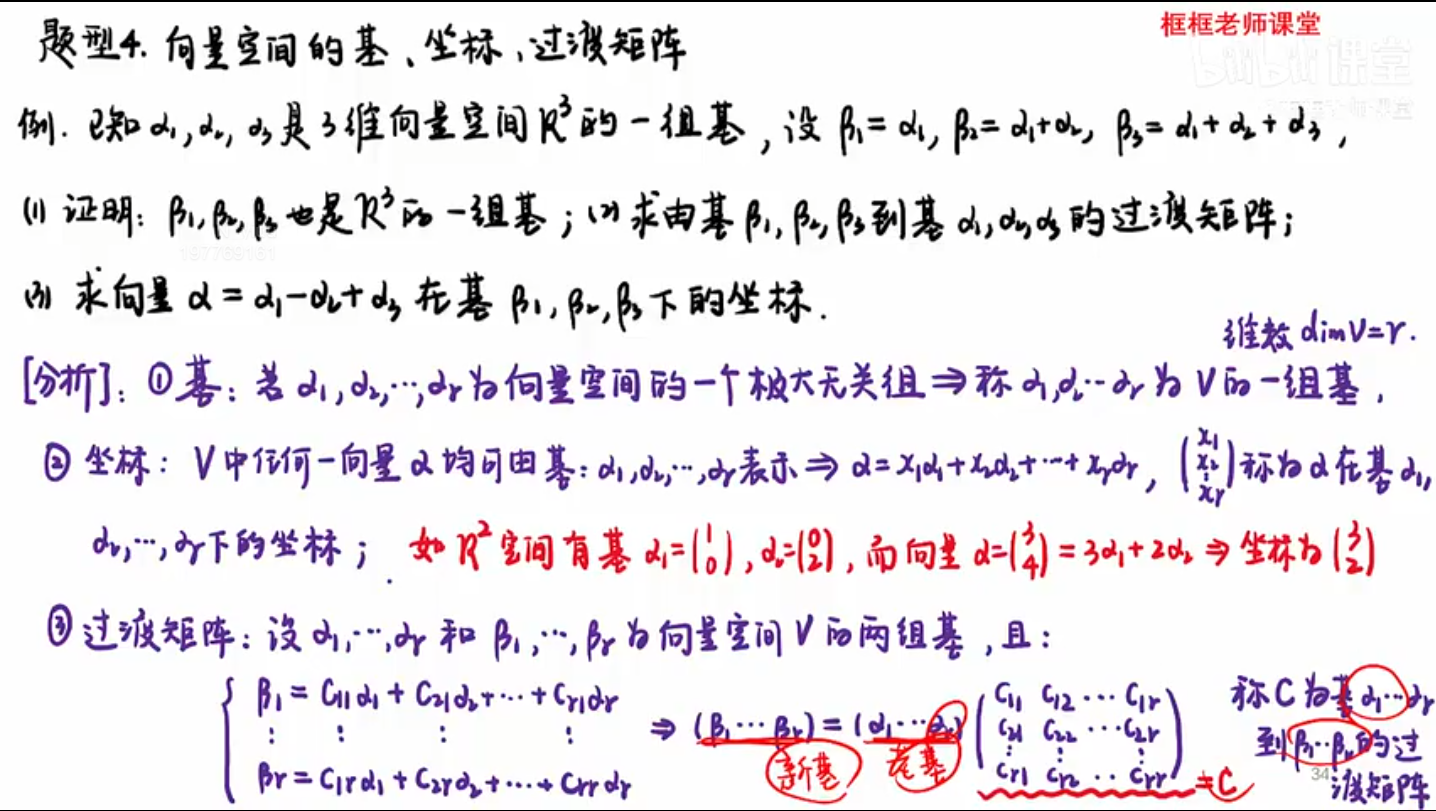 框框老师课堂
bilibili课堂
题型4. 向量空间的基、坐标、过渡矩阵
例. 已知 α₁, α₂, α₃ 是 3 维向量空间 R³ 的一组基, 设 β₁ = α₁, β₂ = α₁+α₂, β₃ = α₁ + α₂ + α₃,
(1) 证明: β₁, β₂, β₃ 也是 R³ 的一组基; (2) 求由基 β₁, β₂, β₃ 到基 α₁, α₂, α₃ 的过渡矩阵;
197769161
(3) 求向量 α = α₁-α₂+α₃ 在基 β₁, β₂, β₃ 下的坐标.
维数 dim V = r.
[分析]: ① 基: 若 α₁, α₂, ⋯, αr 为向量空间的一个极大无关组 ⇒ 称 α₁, α₂ ⋯ αr 为 V 的一组基,
② 坐标: V 中任何一向量 α 均可由基: α₁, α₂, ⋯, αr 表示 ⇒ α = x₁α₁ + x₂α₂ + ⋯ + xrαr, (x₁ x₂ ⋮ xr) 称为 α 在基 α₁,
α₂, ⋯, αr 下的坐标; 如 R² 空间有基 α₁ = (1 0), α₂ = (0 2), 而向量 α = (3 4) = 3α₁ + 2α₂ ⇒ 坐标为 (3 2)
③ 过渡矩阵: 设 α₁, ⋯, αr 和 β₁, ⋯, βr 为向量空间 V 的两组基, 且:
β₁ = C₁₁α₁ + C₂₁α₂ + ⋯ + Cr₁αr
⋮ ⋮ ⋮ ⋮
βr = C₁rα₁ + C₂rα₂ + ⋯ + Crrαr
⇒ (β₁ ⋯ βr) = (α₁ ⋯ αr)
新基 老基
C₁₁ C₁₂ ⋯ C₁r
C₂₁ C₂₂ ⋯ C₂r
⋮ ⋮ ⋮
Cr₁ Cr₂ ⋯ Crr
= C
称 C 为基 α₁ ⋯ αr
到 β₁ ⋯ βr 的过
渡矩阵
34